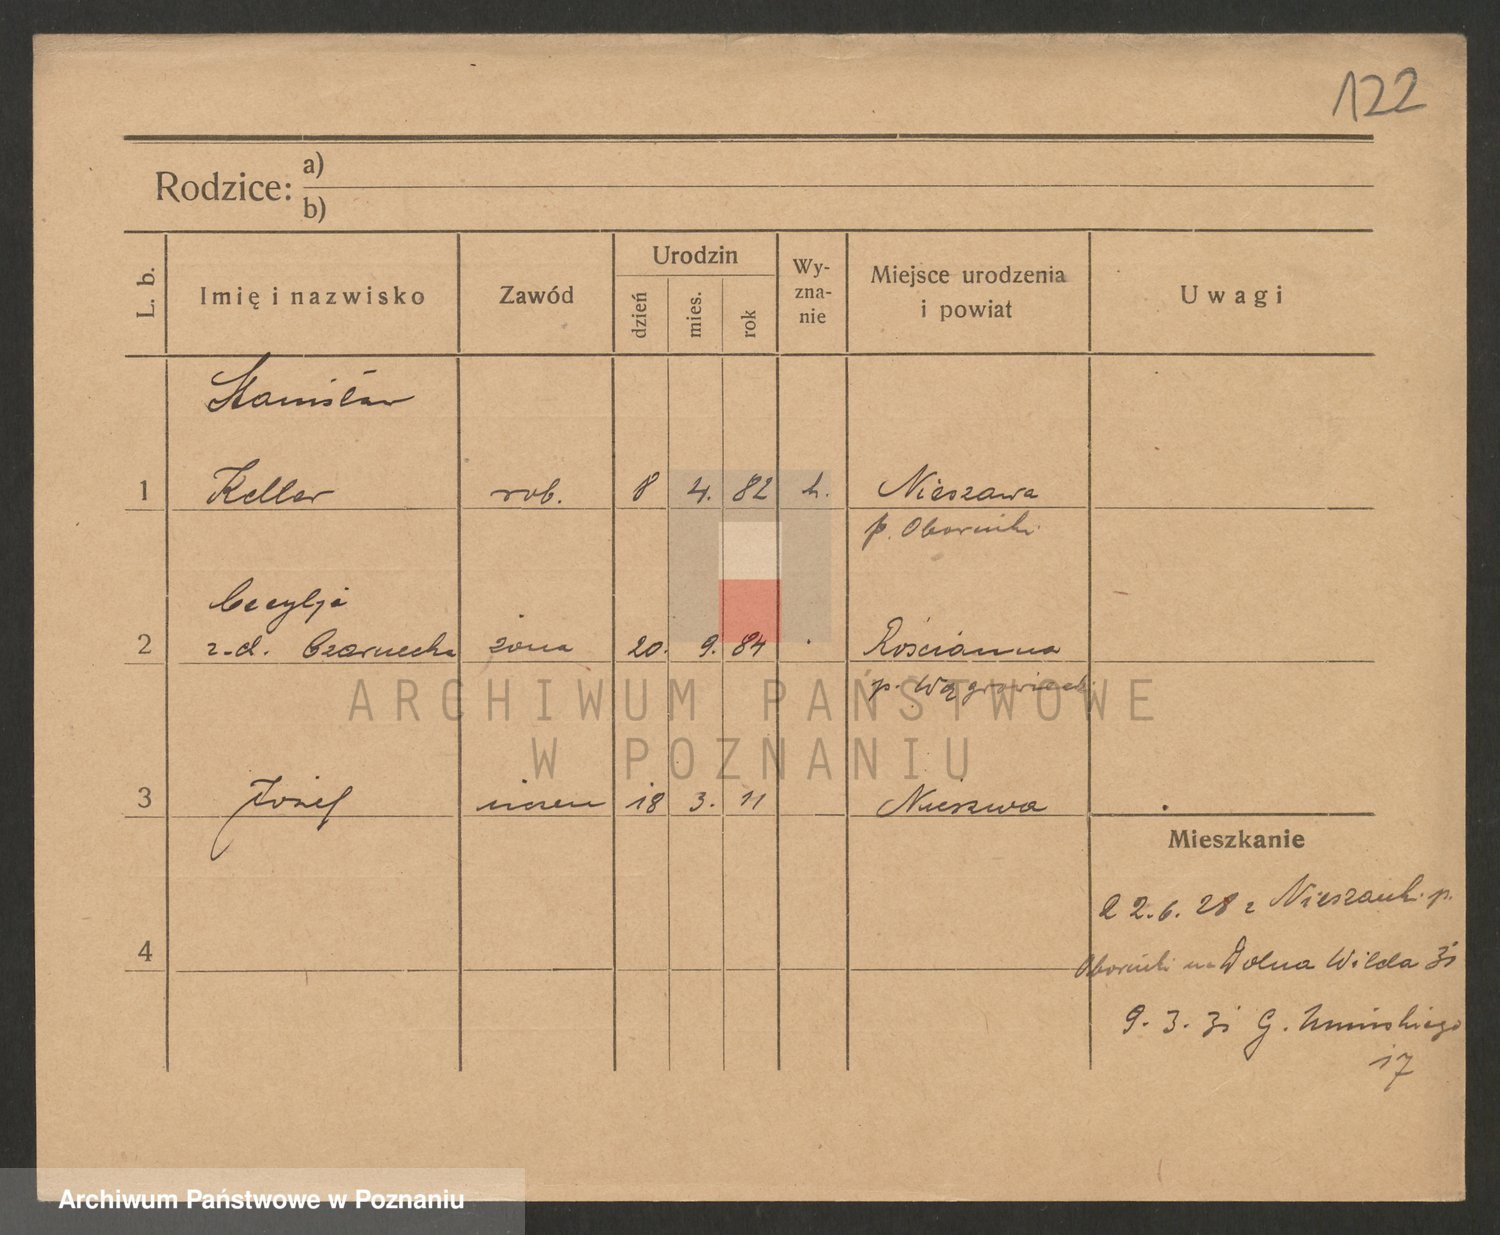 122
Rodzice: a)
b)
L. b.
Imię i nazwisko
Zawód
Urodzin
dzień
mies.
rok
Wy-
zna-
nie
Miejsce urodzenia
i powiat
Uwagi
Stanisław
1 Keller rob. 8 4. 82 k. Nieszawa
p. Oborniki
Cecylja
2 z.d. Czarnecka żona 20. 9. 84 Rościnna
p. Wągrowiecki
3 Józef uczeń 18 3. 11 Nieszawa
Mieszkanie
22.6.28 z p.
4 Oborniki na Dolna Wilda 31
9.3.31 G. Umińskiego
17
ARCHIWUM PAŃSTWOWE
W POZNANIU
Archiwum Państwowe w Poznaniu